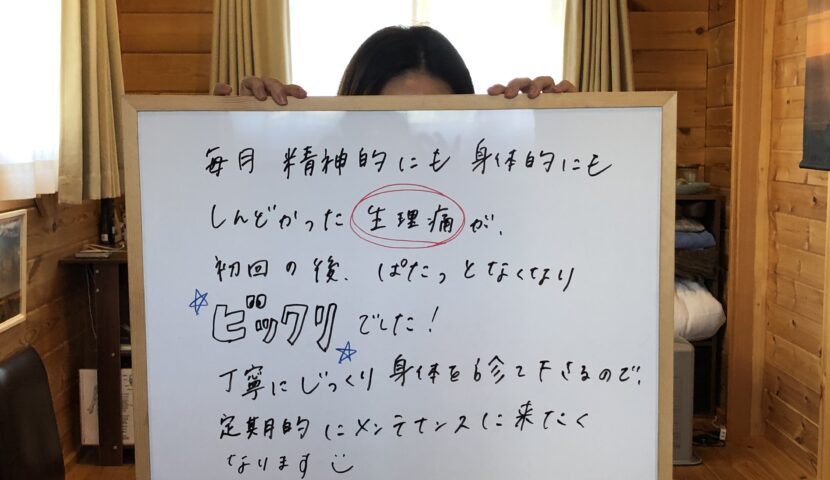 毎月 精神的にも 身体的にも
しんどかった 生理痛が、
初回の後、ぱたっとなくなり
ビックリでした!
丁寧にじっくり身体を診て下さるので、
定期的にメンテナンスに来たく
なります